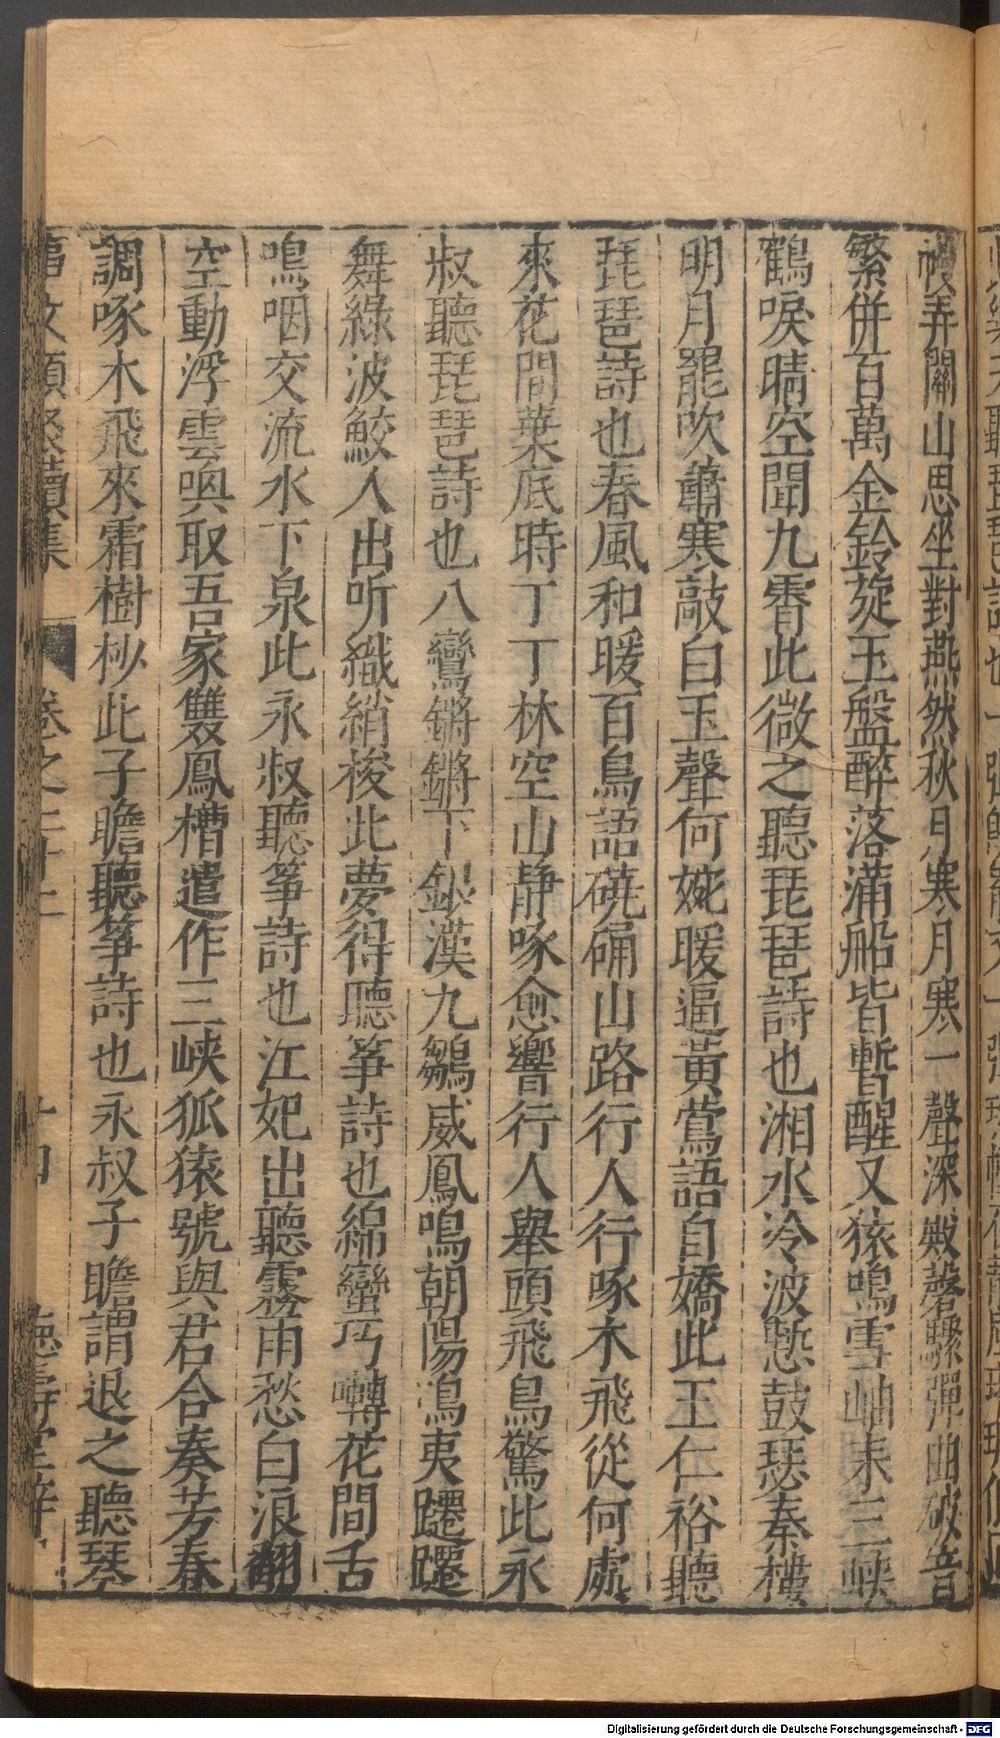 慢弄關山思坐對燕然秋月寒月寒一聲深殿磬驟彈曲破音
繁併百萬金鈴旋玉盤醉落滿船皆暫醒又猿鳴雪岫來三峽
鶴唳晴空聞九霄此微之聽琵琶詩也湘水冷波慙鼓瑟秦樓
明月罷吹簫寒敲白玉聲何婉暖逼黃鶯語自嬌此王仁裕聽
琵琶詩也春風和暖百鳥語磽确山路行人行啄木飛從何處
來花間葉底時丁丁林空山靜啄愈響行人舉頭飛鳥驚此永
叔聽琵琶詩也八鸞鏘鏘下銀漢九鶵威鳳鳴朝陽鴻夷躚躚
舞綠波鮫人出听織綃梭此夢得聽箏詩也綿蠻巧囀花間舌
鳴咽交流水下泉此永叔聽箏詩也江妃出聽霧雨愁白浪翻
空動浮雲喚取吾家雙鳳槽遣作三峽孤猿號與君合奏芳春
調啄木飛來霜樹杪此子瞻聽箏詩也永叔子瞻謂退之聽琴
事文類聚續集 卷之二十二 十四 德壽堂梓
Digitalisierung gefördert durch die Deutsche Forschungsgemeinschaft - DFG